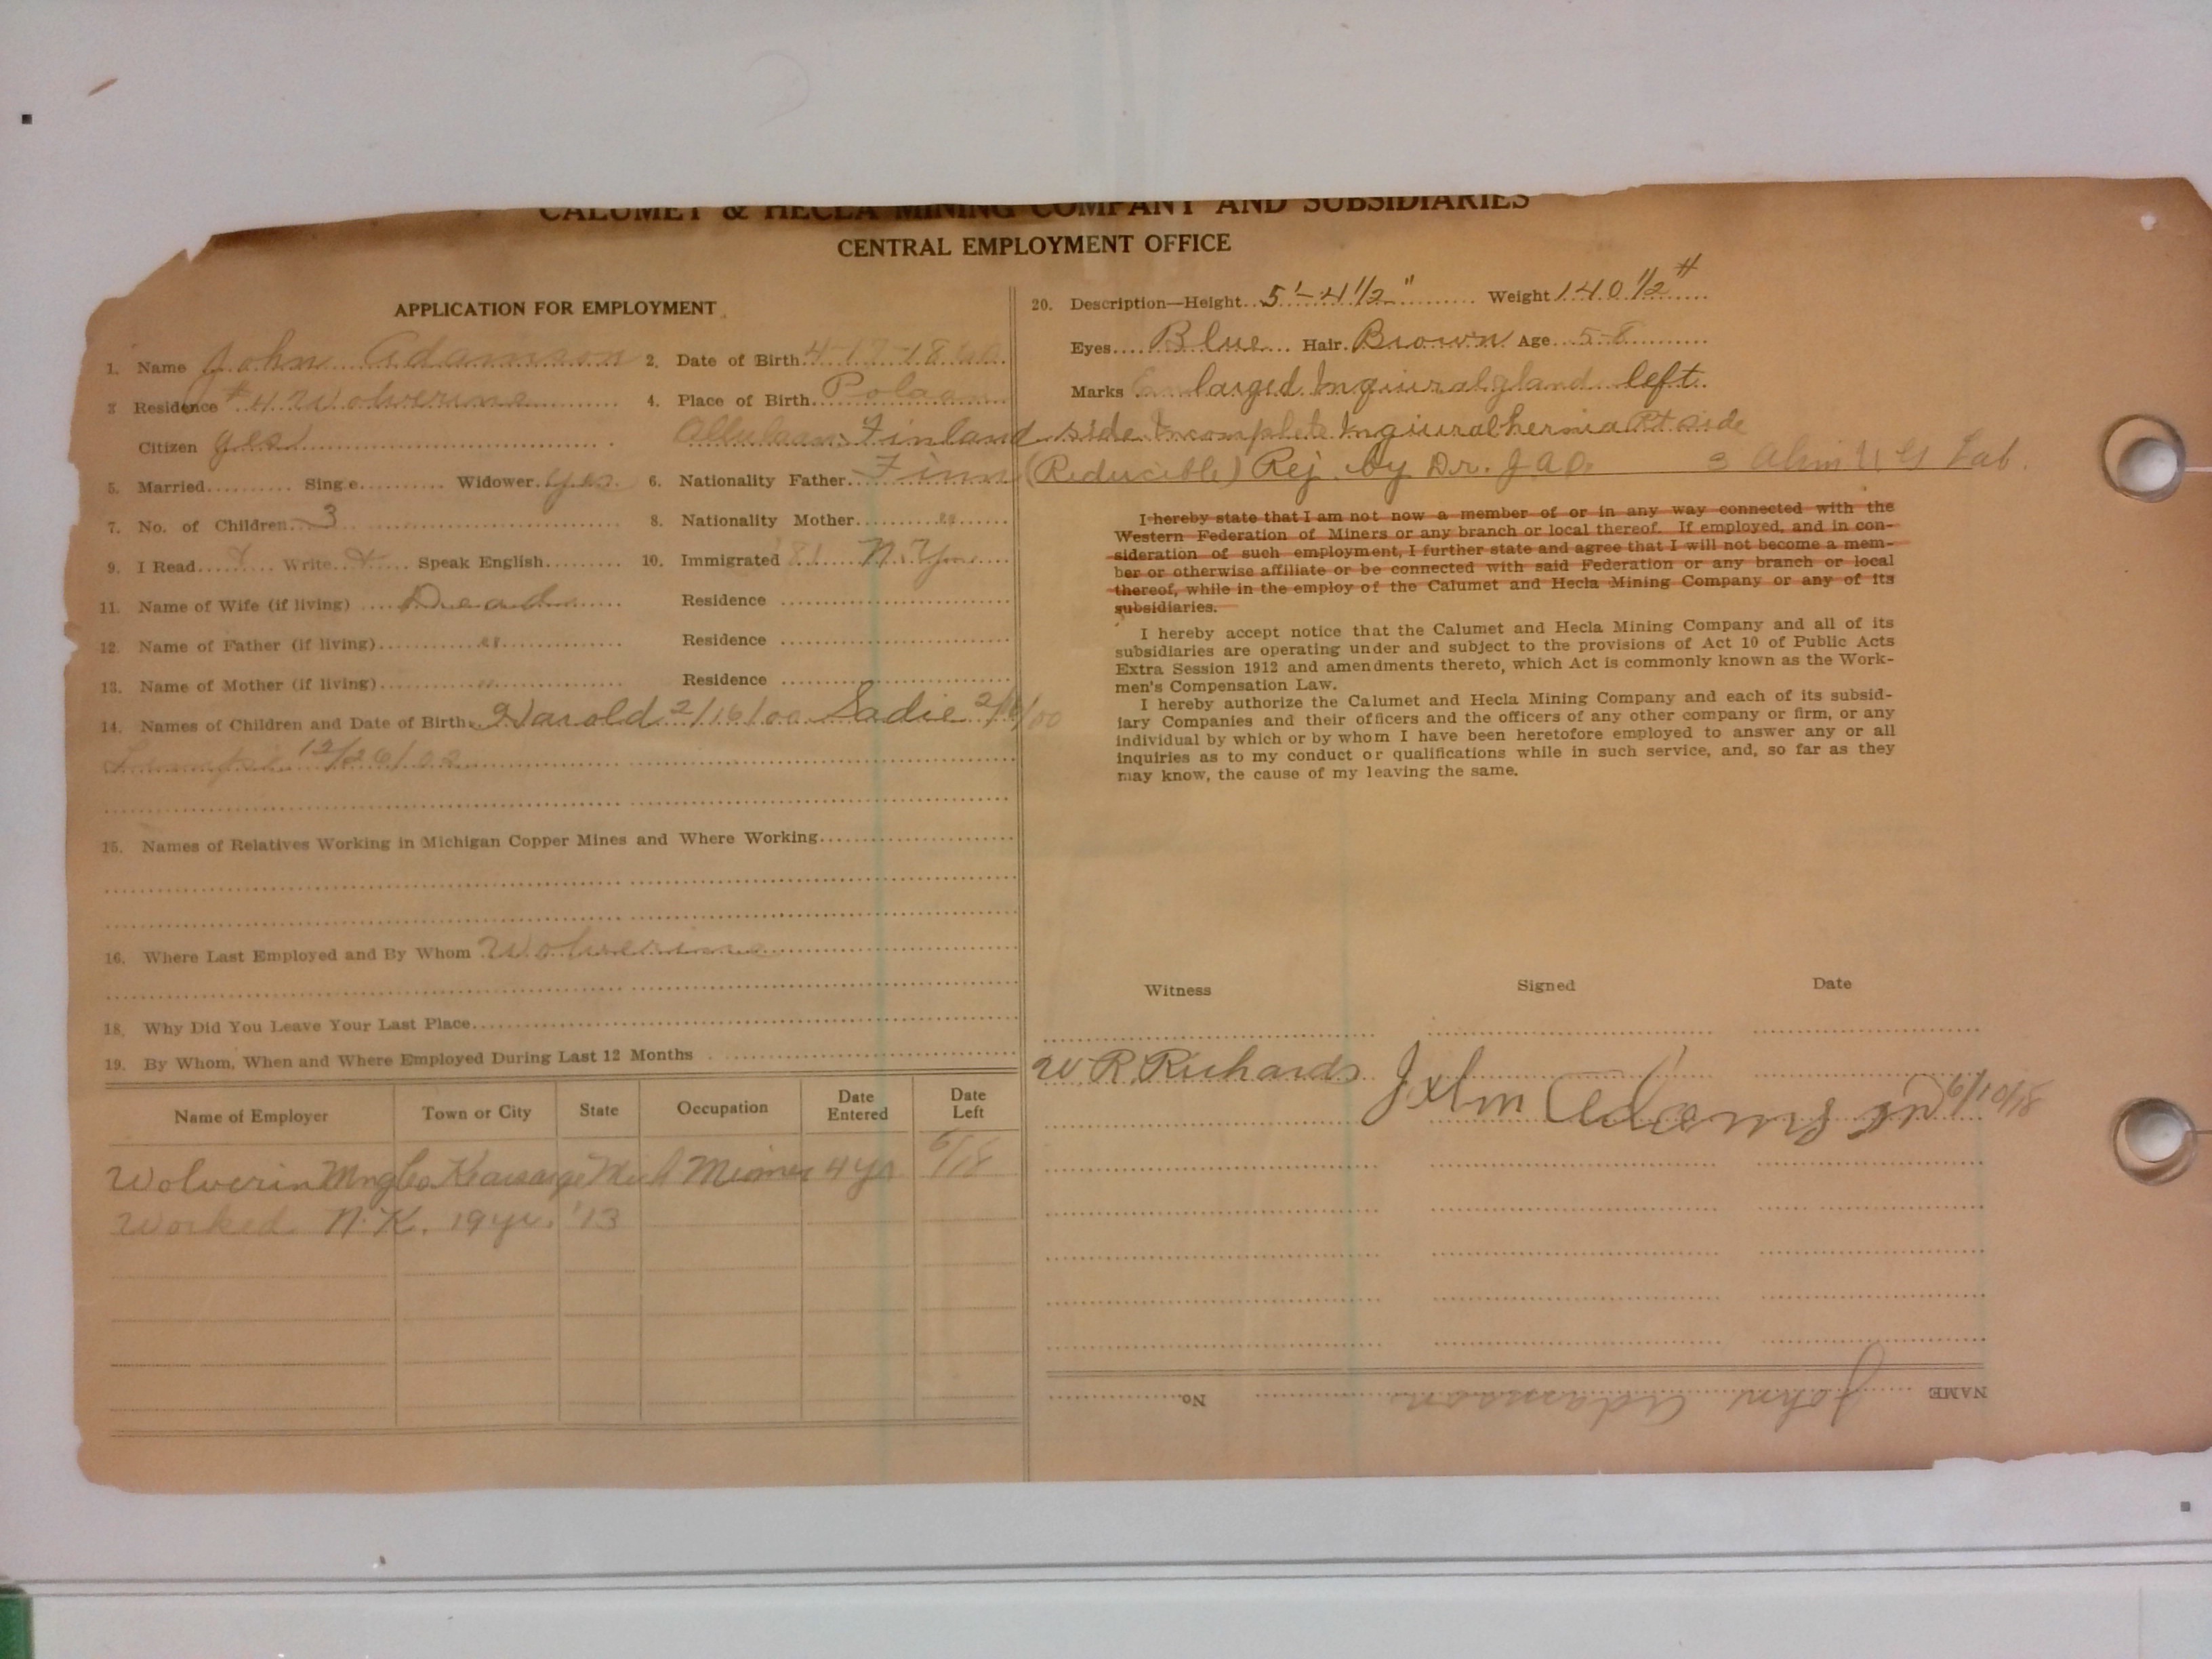 CALUMET & HECLA MINING COMPANY AND SUBSIDIARIES
CENTRAL EMPLOYMENT OFFICE
APPLICATION FOR EMPLOYMENT
1. Name John Adamson 2. Date of Birth 4-17-1860
3 Residence #4 Wolverine 4. Place of Birth
Citizen yes Finland
5. Married Single Widower yes 6. Nationality Father Finn
7. No. of Children 3 8. Nationality Mother "
9. I Read Write Speak English 10. Immigrated '81 N. York
11. Name of Wife (if living) Dead Residence
12. Name of Father (if living) " Residence
13. Name of Mother (if living) " Residence
14. Names of Children and Date of Birth Harold 2/16/00 Sadie 2/16/00
12/26/02
15. Names of Relatives Working in Michigan Copper Mines and Where Working
16. Where Last Employed and By Whom Wolverine
18. Why Did You Leave Your Last Place
19. By Whom, When and Where Employed During Last 12 Months
Name of Employer Town or City State Occupation Date Entered Date Left
Wolverin Mng Co Kearsarge Mich Miner 4 yr 6/18
Worked N.K. 19 yr. '13
20. Description—Height 5'-4 1/2" Weight 140 1/2 #
Eyes Blue Hair Brown Age 58
Marks Enlarged Inguiral gland left
side Incomplete Inguiral hernia Rt side
(Reducible) Rej. by Dr. 3 Ahm U G Lab.
I hereby state that I am not now a member of or in any way connected with the
Western Federation of Miners or any branch or local thereof. If employed, and in con-
sideration of such employment, I further state and agree that I will not become a mem-
ber or otherwise affiliate or be connected with said Federation or any branch or local
thereof, while in the employ of the Calumet and Hecla Mining Company or any of its
subsidiaries.
I hereby accept notice that the Calumet and Hecla Mining Company and all of its
subsidiaries are operating under and subject to the provisions of Act 10 of Public Acts
Extra Session 1912 and amendments thereto, which Act is commonly known as the Work-
men's Compensation Law.
I hereby authorize the Calumet and Hecla Mining Company and each of its subsid-
iary Companies and their officers and the officers of any other company or firm, or any
individual by which or by whom I have been heretofore employed to answer any or all
inquiries as to my conduct or qualifications while in such service, and, so far as they
may know, the cause of my leaving the same.
Witness Signed Date
W R Richards John Adamson 6/10/18
NAME John Adamson No.